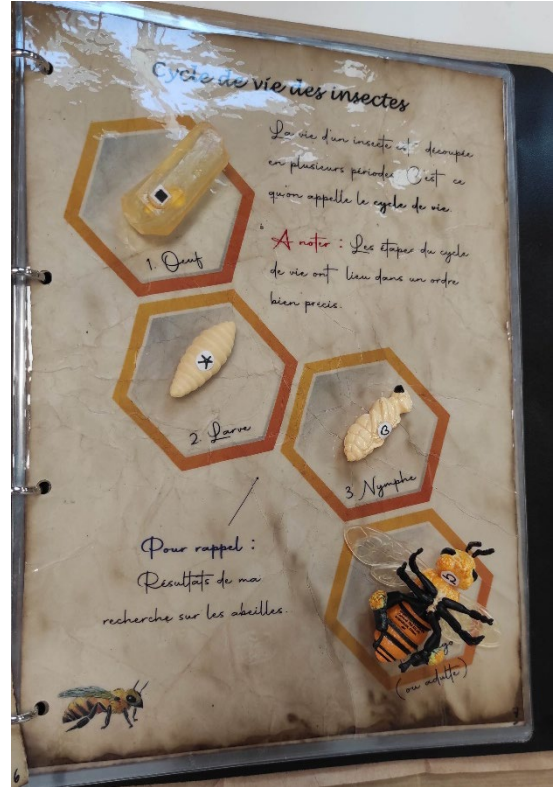 Cycle de vie des insectes
La vie d'un insecte est découpée
en plusieurs périodes C'est ce
qu'on appelle le cycle de vie.
A noter : Les étapes du cycle
de vie ont lieu dans un ordre
bien précis.
1. Oeuf
2. Larve
3 Nymphe
(ou adulte)
Pour rappel :
Résultats de ma
recherche sur les abeilles.
6